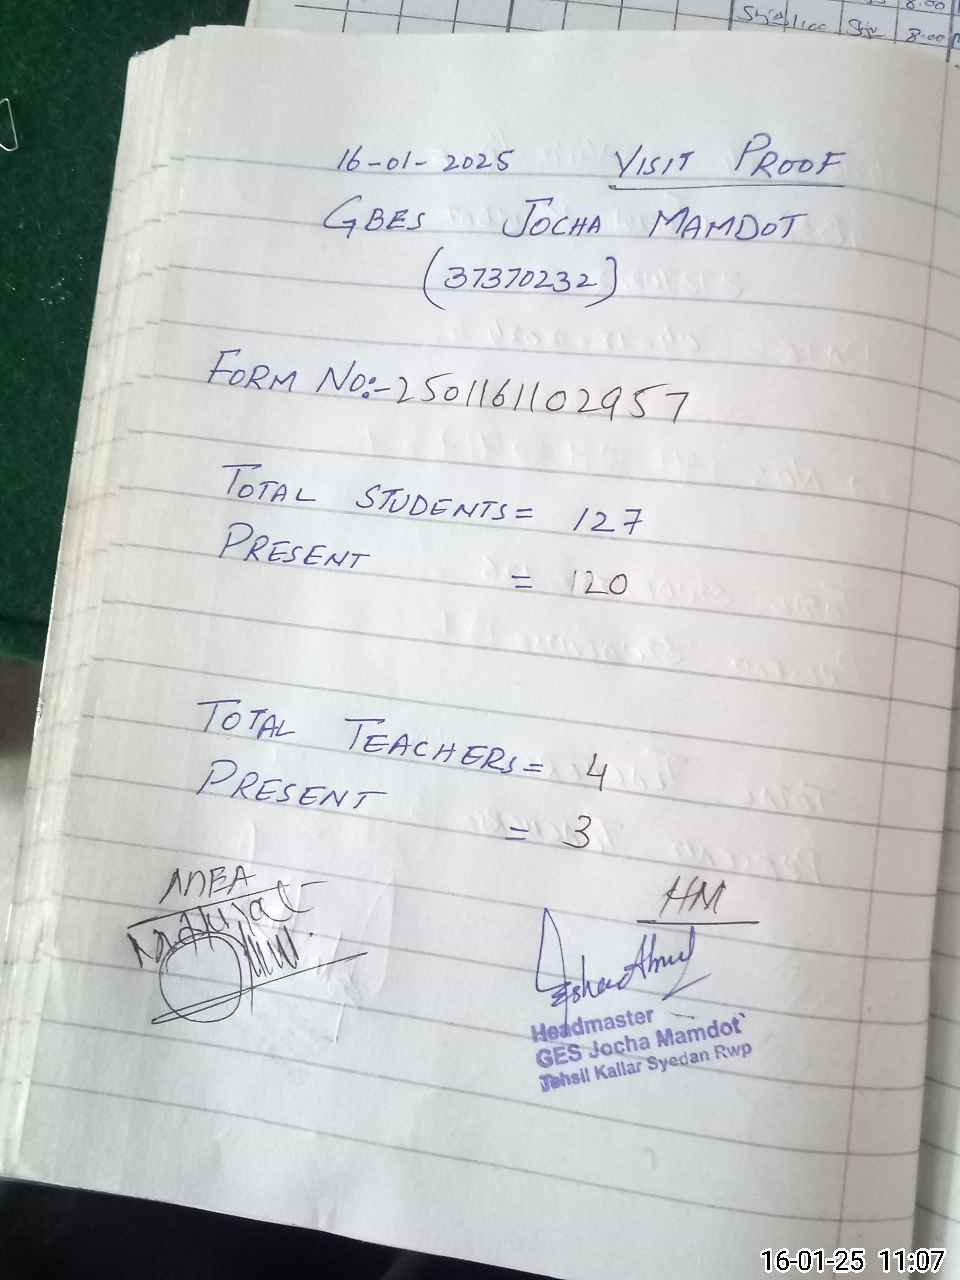 Shjaliaa 8.00
16-01-2025 VISIT PROOF
GBES JOCHA MAMDOT
(37370232)
FORM NO:-2501161102957
TOTAL STUDENTS= 127
PRESENT = 120
TOTAL TEACHERS= 4
PRESENT = 3
HM
Headmaster
GES Jocha Mamdot
Tehsil Kallar Syedan Rwp
16-01-25 11:07